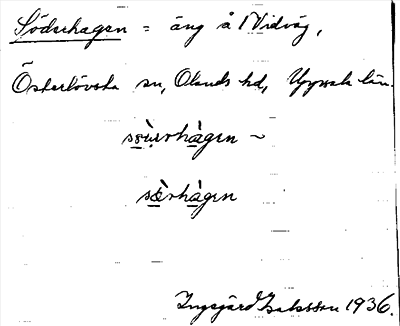 Söderhagen = äng å N Vidvåg,
Österlövsta sn, Olands hd, Uppsala län.
hàgen ~
sæ̀rhàgen
Ingegärd Isaksson 1936.